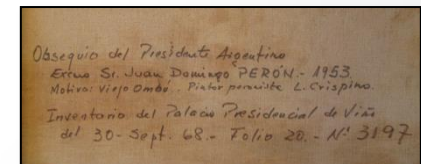 Obsequio del Presidente Argentino
Excmo Sr. Juan Domingo PERÓN.- 1953
Motivo: Viejo Ombú. Pintor peronista L. Crispino.
Inventario del Palacio Presidencial de Viña
del 30- Sept. 68.- Folio 20.- Nº 3197